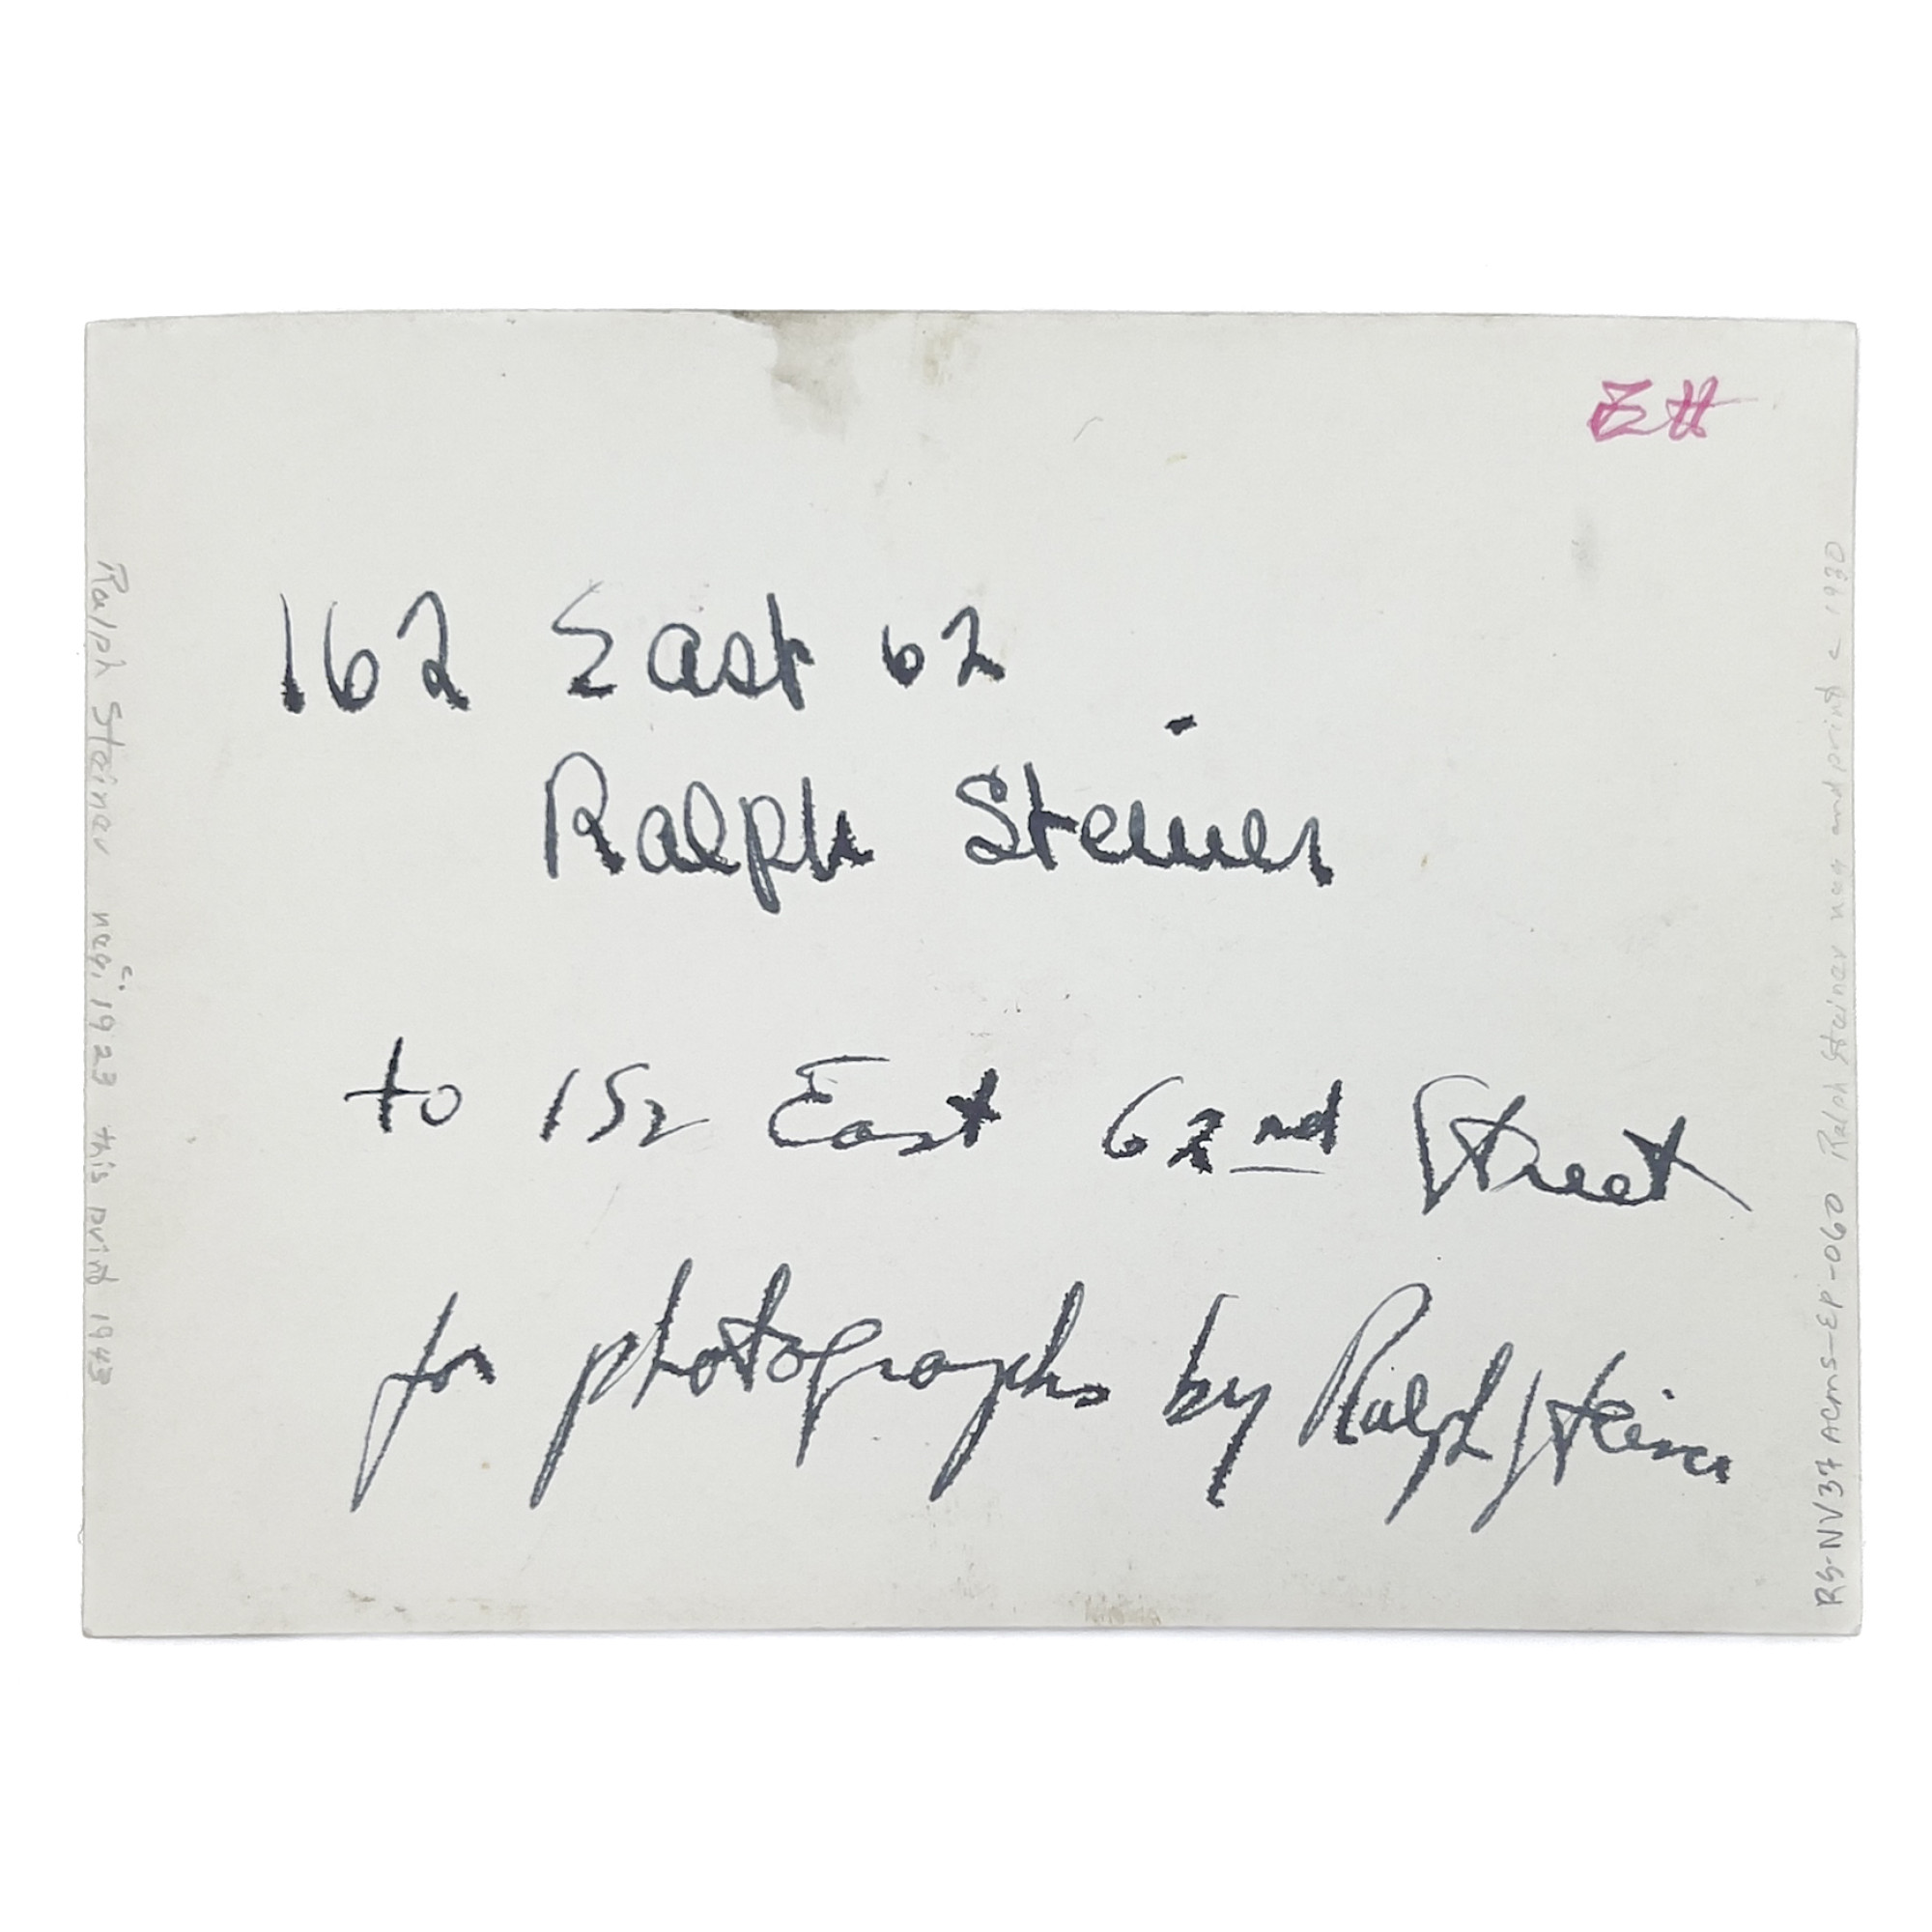 EH
162 East 62
Ralph Steiner
to 152 East 62nd Street
for photographs by Ralph Steiner
Ralph Steiner neg. c. 1923 this print 1943
RS-NV37 ACMS-EP-060 Ralph Steiner neg and print c 1930